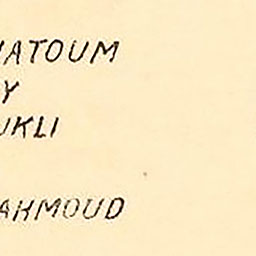 HATOUM
Y
UKLI
AHMOUD